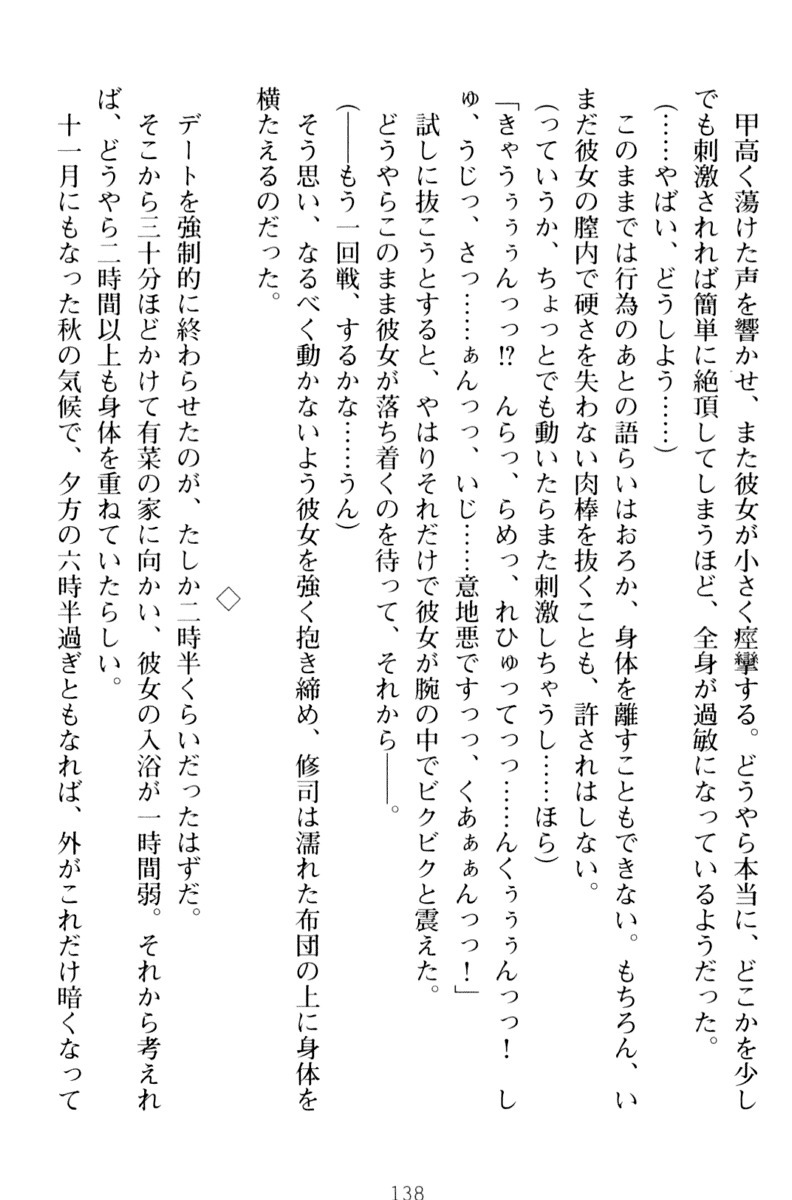 甲高く蕩けた声を響かせ、また彼女が小さく痙攣する。どうやら本当に、どこかを少し
でも刺激されれば簡単に絶頂してしまうほど、全身が過敏になっているようだった。
(……やばい、どうしよう……)
このままでは行為のあとの語らいはおろか、身体を離すこともできない。もちろん、い
まだ彼女の膣内で硬さを失わない肉棒を抜くことも、許されはしない。
(っていうか、ちょっとでも動いたらまた刺激しちゃうし……ほら)
「きゃうぅぅぅんっっ!? んらっ、らめっ、れひゅってっっ……んくぅぅぅんっっ! し
ゅ、うじっ、さっ……ぁんっっ、いじ……意地悪ですっっ、くあぁぁんっっ!」
試しに抜こうとすると、やはりそれだけで彼女が腕の中でビクビクと震えた。
どうやらこのまま彼女が落ち着くのを待って、それから――。
(――もう一回戦、するかな……うん)
そう思い、なるべく動かないよう彼女を強く抱き締め、修司は濡れた布団の上に身体を
横たえるのだった。
◇
デートを強制的に終わらせたのが、たしか二時半くらいだったはずだ。
そこから三十分ほどかけて有菜の家に向かい、彼女の入浴が一時間弱。それから考えれ
ば、どうやら二時間以上も身体を重ねていたらしい。
十一月にもなった秋の気候で、夕方の六時半過ぎともなれば、外がこれだけ暗くなって
138